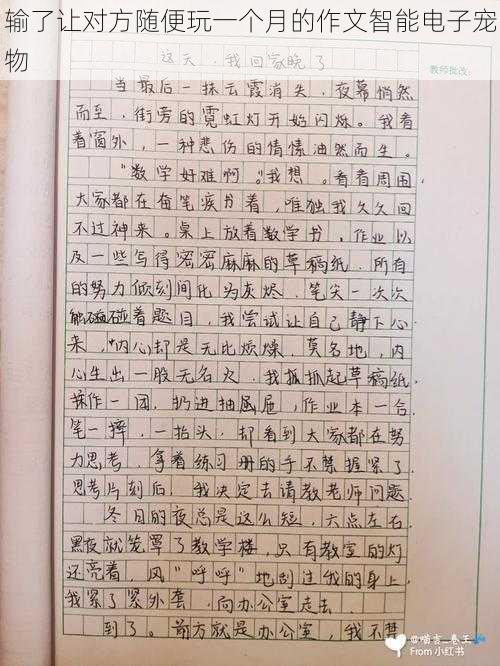 输了让对方随便玩一个月的作文智能电子宠
物
教师批改:
这天,我回家晚了
当最后一抹云霞消失,夜幕悄然
而至,街旁的霓虹灯开始闪烁。我看
着窗外,一种悲伤的情愫油然而生。
“数学好难啊。”我想。看看周围,
大家都在奋笔疾书着,唯独我久久回
不过神来。桌上放着数学书,作业以
及一些写得密密麻麻的草稿纸,所有
的努力倾刻间化为灰烬.笔尖一次次
触碰着题目,我尝试让自己静下心
来,内心却是无比烦燥.莫名地,内
心生出一股无名火.我抓抓起草稿纸
揉作一团,扔进抽屉,作业本一合
笔一摔,一抬头,却看到大家都在努
力思考.拿着练习册的手不禁握紧了.
思考片刻后,我决定去请教老师问题.
冬日的夜总是这么短,六点左右,
黑夜就笼罩了教学楼,只有教室的灯
还亮着,风“呼呼”地刮过我的身上,
我紧了紧外套,向办公室走去.
到了。前方就是办公室,我不禁
@喵言_卷王
From 小红书